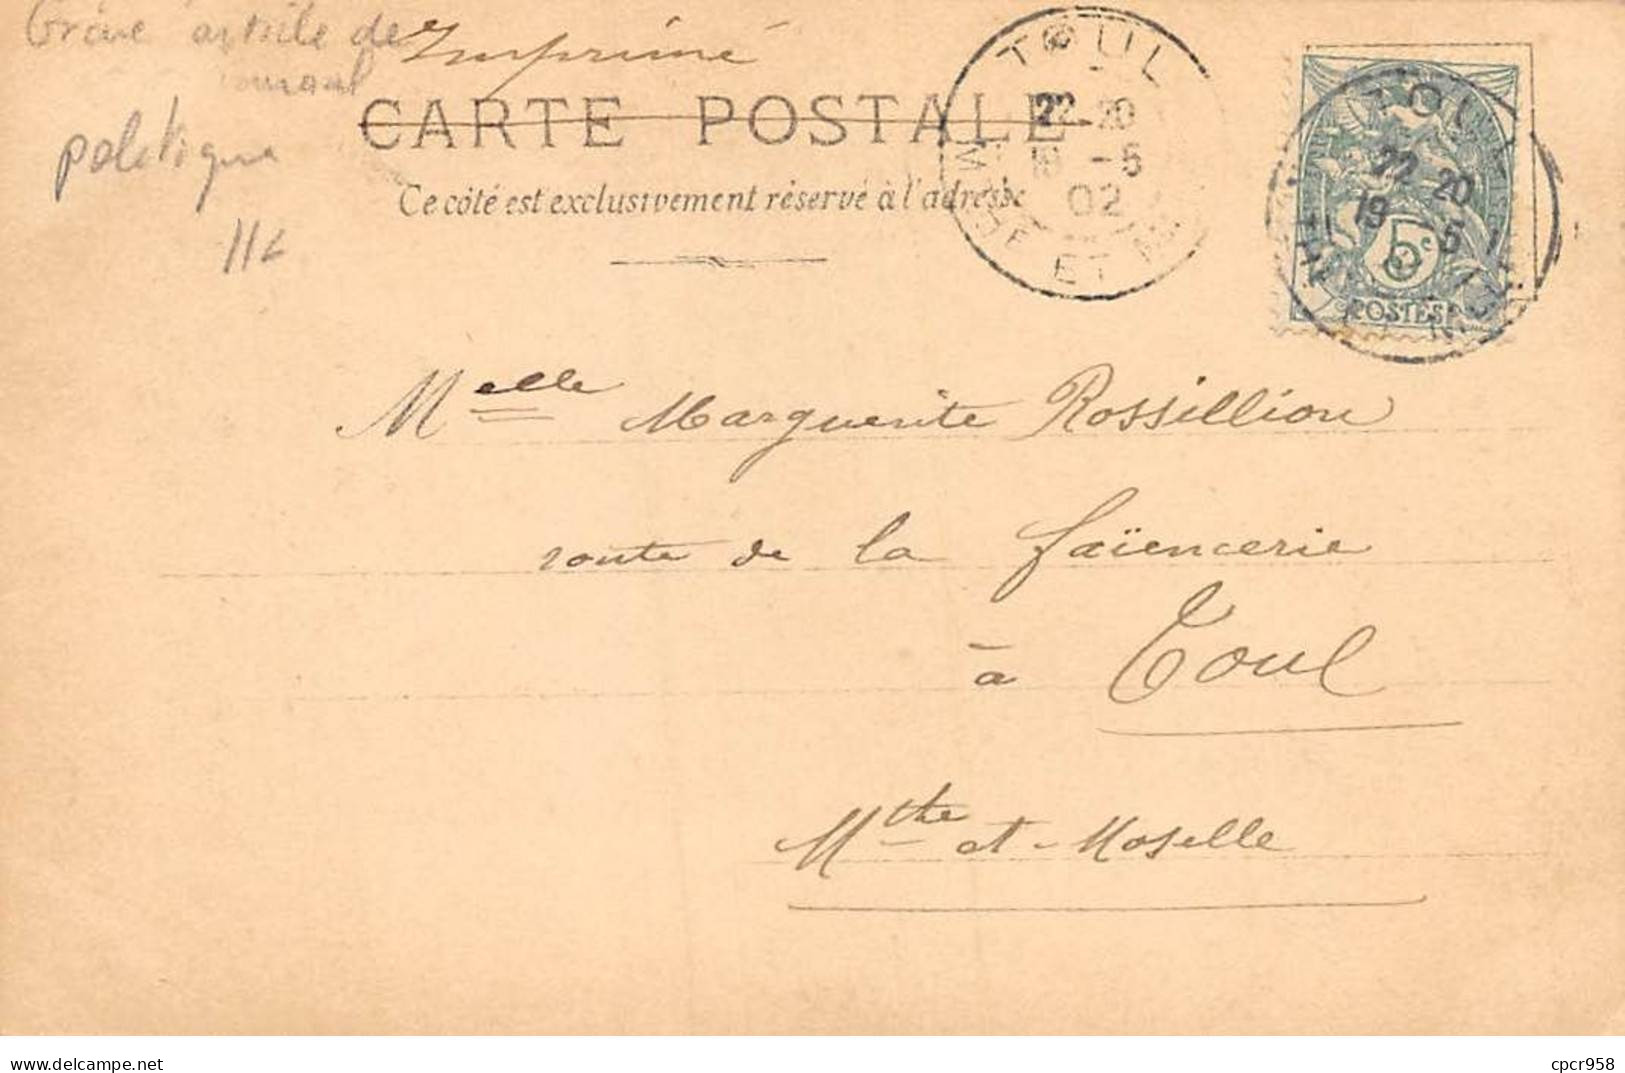 Grève article de
journal
politique
Imprimé
CARTE POSTALE
Ce côté est exclusivement réservé à l'adresse
TOUL
22-20
-5
02
ET M
TOUL
22 20
19 -5
5c
POSTES
Melle Marguerite Rossillion
route de la faïencerie
à Toul
Mthe et-Moselle
delcampe.net
cpcr958